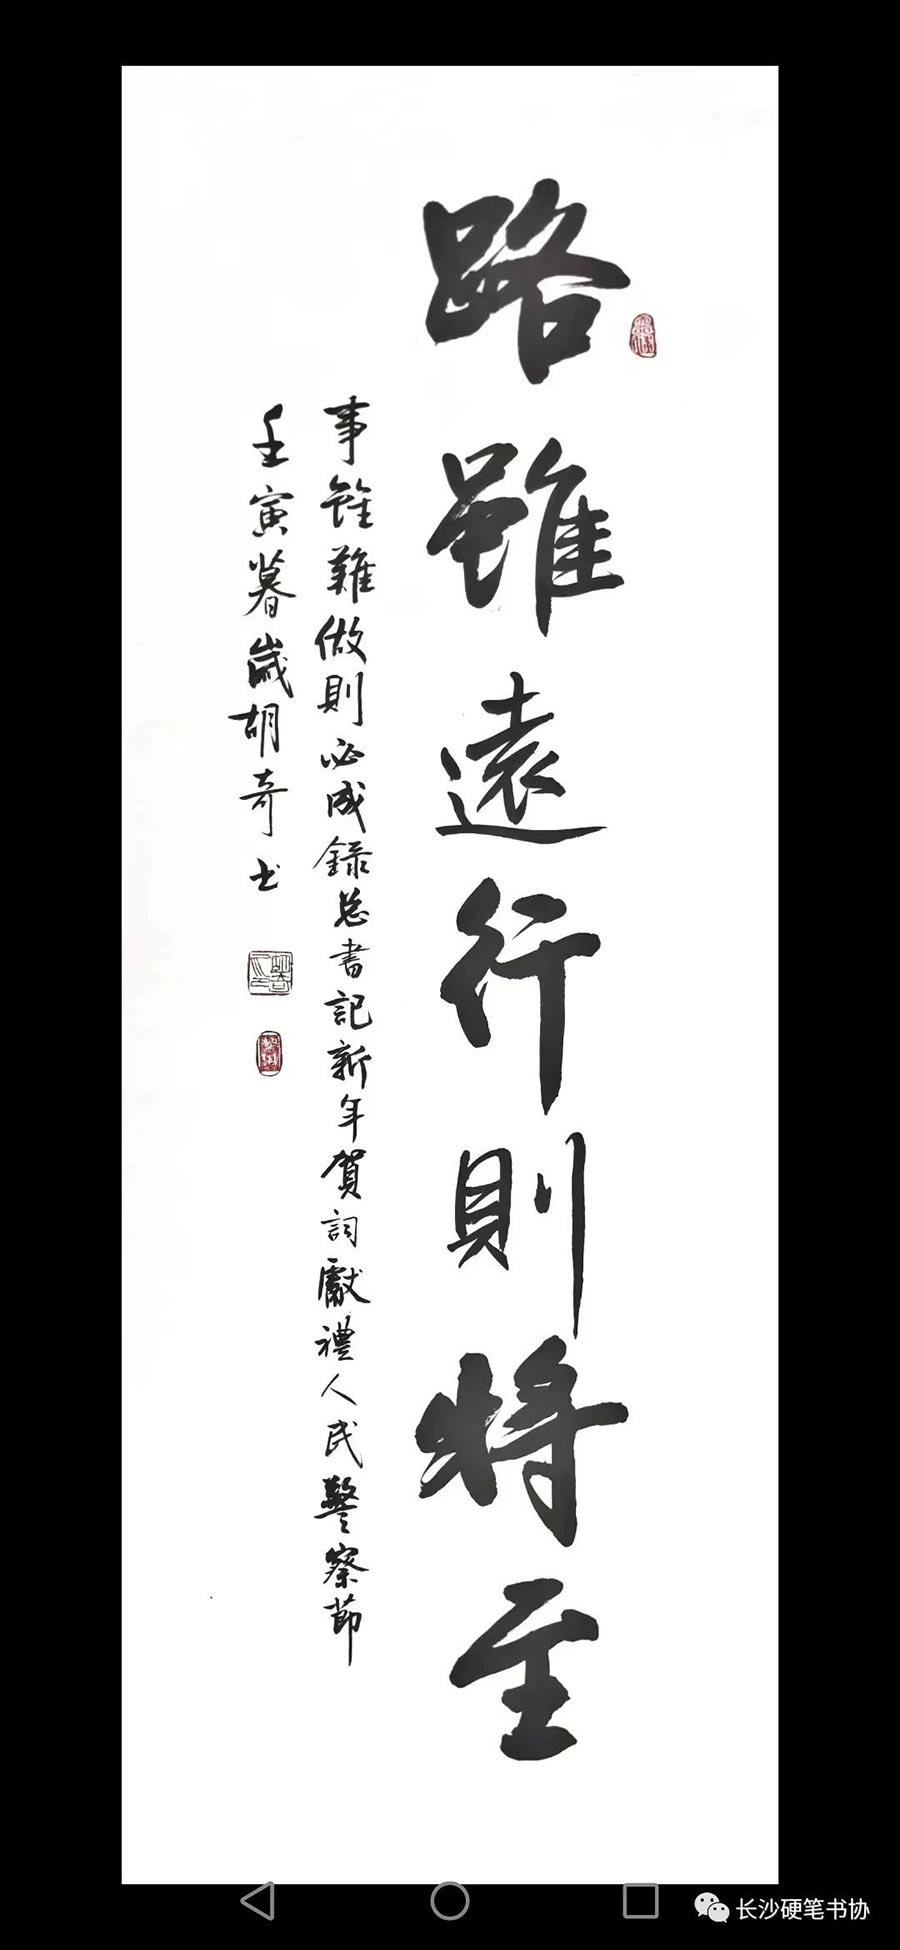 路雖遠行則將至
事雖難做則必成錄总書記新年賀詞獻禮人民警察節
壬寅暮歲胡奇书
长沙硬笔书协